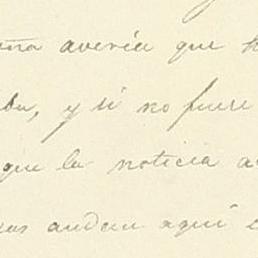 avería que
y si no fuese
que la noticia
andan aquí